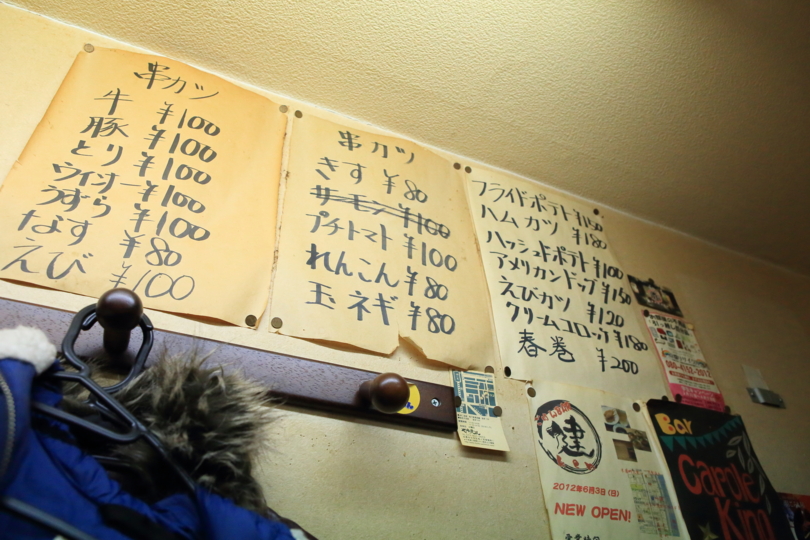 串カツ
牛 ¥100
豚 ¥100
とり ¥100
ウインナー ¥100
うずら ¥100
なす ¥80
えび ¥100
串カツ
きす ¥80
サーモン ¥100
プチトマト ¥100
れんこん ¥80
玉ネギ ¥80
フライドポテト ¥150
ハムカツ ¥180
ハッシュドポテト ¥100
アメリカンドッグ ¥150
えびカツ ¥120
クリームコロッケ ¥180
春巻 ¥200
健
2012年6月3日(日)
NEW OPEN!
Bar
Carole
King